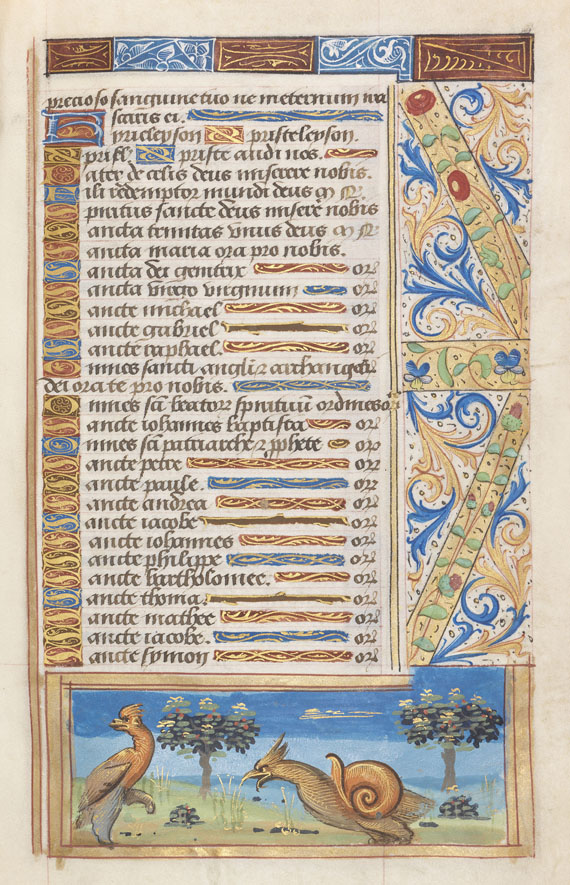 precioso sanguine tuo ne in eternum ira
scaris ei.
Kirieleyson Xpisteleyson.
Xpriste audi nos.
Pater de celis deus miserere nobis.
Fili redemptor mundi deus m
Spiritus sancte deus misere nobis
Sancta trinitas vnus deus m
Sancta maria ora pro nobis.
Sancta dei genitrix or
Sancta virgo virginum or
Sancte michael or
Sancte gabriel or
Sancte raphael. or
Omnes sancti angli et archangeli
dei orate pro nobis.
Omnes sci beatorum spirituum ordines or
Sancte iohannes baptista or
Omnes sci patriarche et pphete or
Sancte petre or
Sancte paule. or
Sancte andrea or
Sancte iacobe or
Sancte iohannes or
Sancte philippe or
Sancte bartholomee. or
Sancte thoma. or
Sancte mathee or
Sancte iacobe. or
Sancte symon or